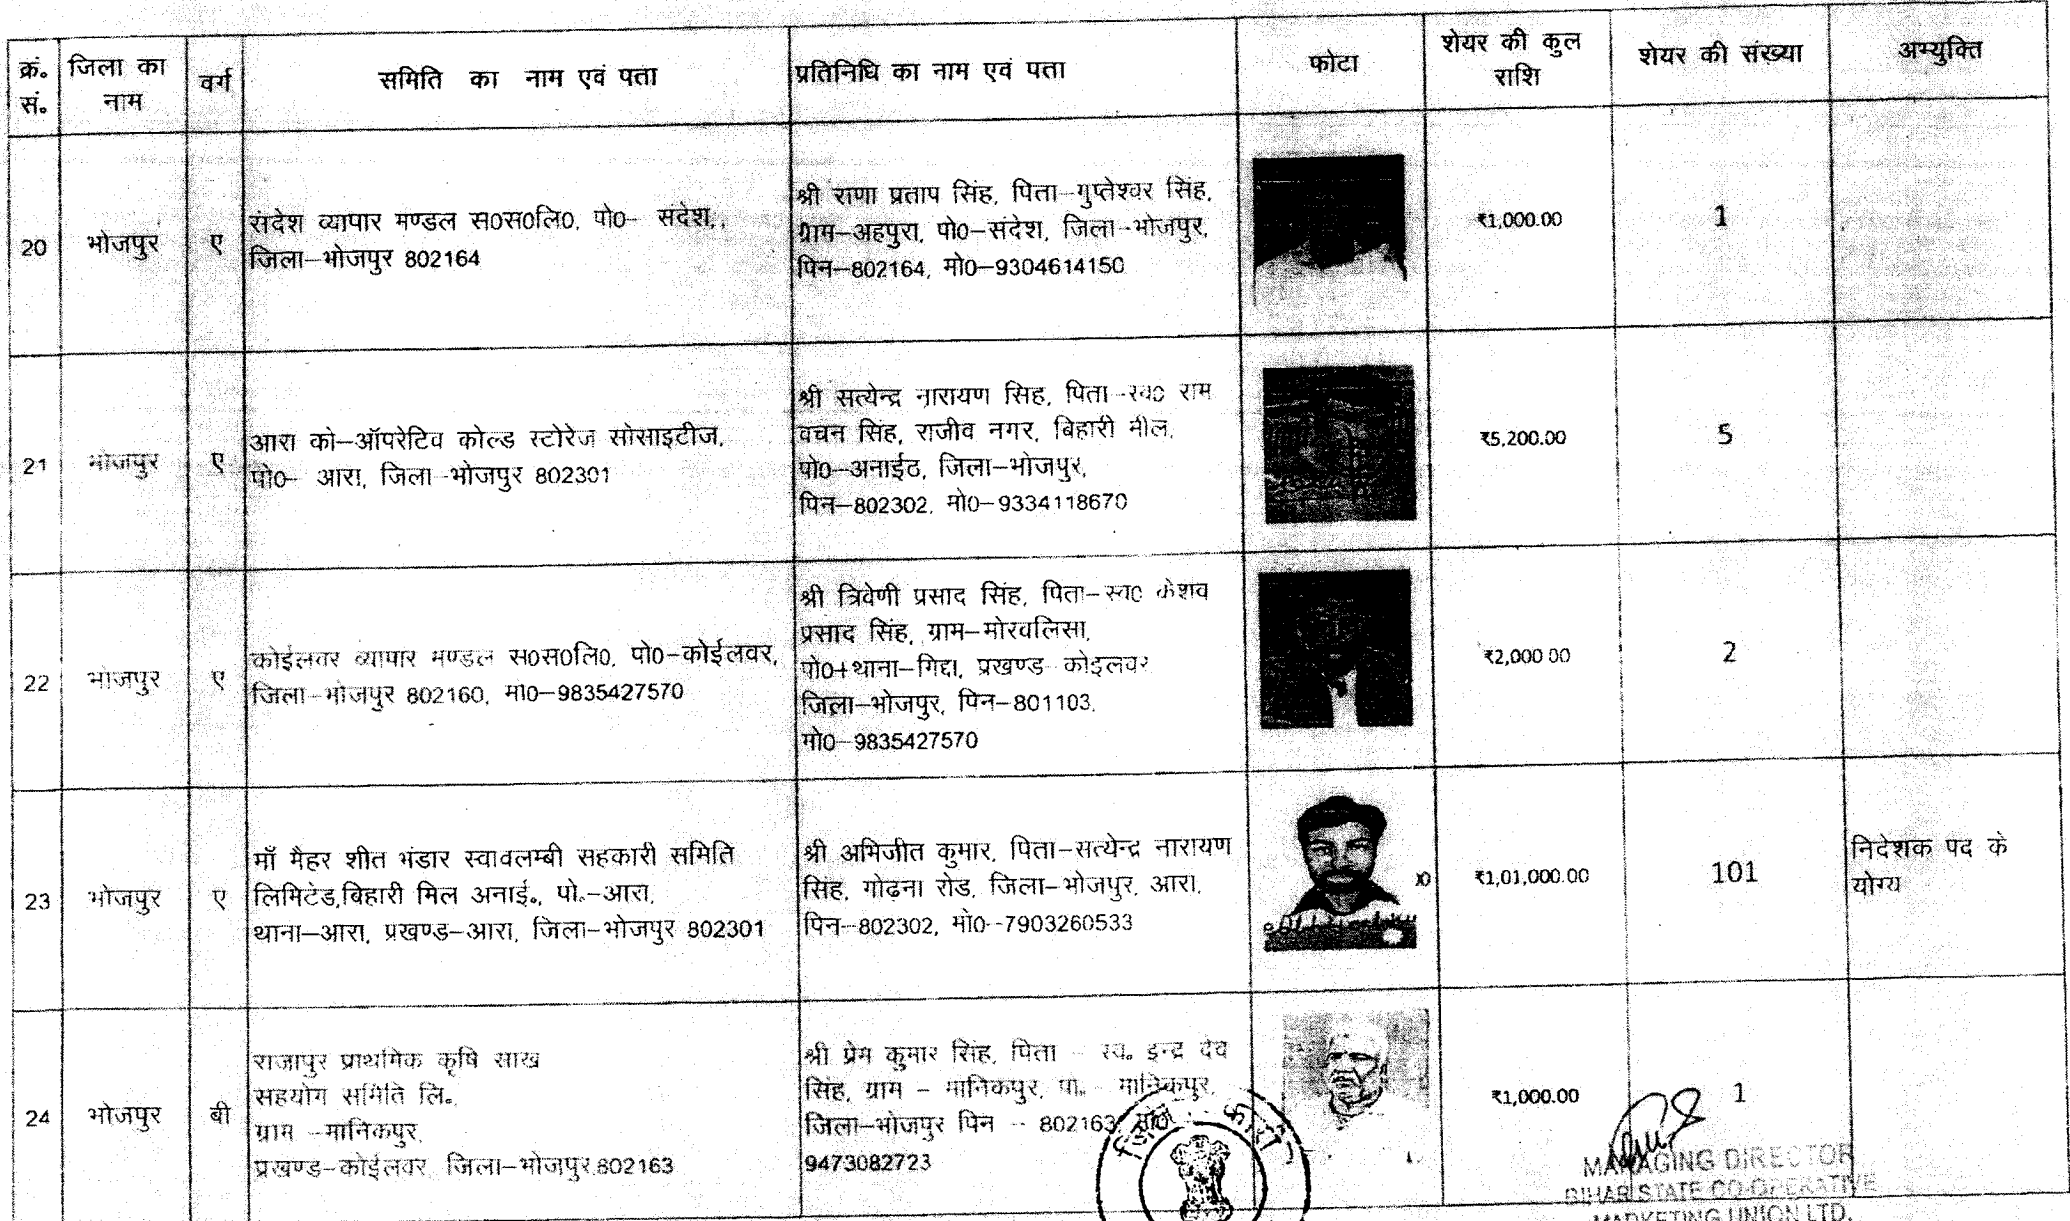 क्रं. सं. जिला का नाम वर्ग समिति का नाम एवं पता प्रतिनिधि का नाम एवं पता फोटा शेयर की कुल राशि शेयर की संख्या अभ्युक्ति
20 भोजपुर ए
संदेश व्यापार मण्डल स0स0लि0, पो0- संदेश,,
जिला-भोजपुर 802164
श्री राणा प्रताप सिंह, पिता-गुप्तेश्वर सिंह,
ग्राम-अहपुरा, पो0-संदेश, जिला-भोजपुर,
पिन-802164, मो0-9304614150
₹1,000.00 1
21 भोजपुर ए
आरा को-ऑपरेटिव कोल्ड स्टोरेज सोसाइटीज,
पो0- आरा, जिला-भोजपुर 802301
श्री सत्येन्द्र नारायण सिंह, पिता-स्व0 राम
वचन सिंह, राजीव नगर, बिहारी मील,
पो0-अनाईठ, जिला-भोजपुर,
पिन-802302, मो0-9334118670
₹5,200.00 5
22 भोजपुर ए
कोईलवर व्यापार मण्डल स0स0लि0, पो0-कोईलवर,
जिला-भोजपुर 802160, मो0-9835427570
श्री त्रिवेणी प्रसाद सिंह, पिता-स्व0 केशव
प्रसाद सिंह, ग्राम-मोरवलिसा,
पो0+थाना-गिद्दा, प्रखण्ड-कोइलवर
जिला-भोजपुर, पिन-801103,
मो0-9835427570
₹2,000.00 2
23 भोजपुर ए
माँ मैहर शीत भंडार स्वावलम्बी सहकारी समिति
लिमिटेड,बिहारी मिल अनाई., पो.-आरा,
थाना-आरा, प्रखण्ड-आरा, जिला-भोजपुर 802301
श्री अभिजीत कुमार, पिता-सत्येन्द्र नारायण
सिंह, गोढ़ना रोड, जिला-भोजपुर, आरा,
पिन-802302, मो0-7903260533
₹1,01,000.00 101
निदेशक पद के
योग्य
24 भोजपुर बी
राजापुर प्राथमिक कृषि साख
सहयोग समिति लि.,
ग्राम -मानिकपुर,
प्रखण्ड-कोईलवर, जिला-भोजपुर,802163
श्री प्रेम कुमार सिंह, पिता - स्व. इन्द्र देव
सिंह, ग्राम - मानिकपुर, पो. मानिकपुर,
जिला-भोजपुर पिन - 802163, मो0-
9473082723
₹1,000.00 1
MANAGING DIRECTOR
BIHAR STATE CO-OPERATIVE
MARKETING UNION LTD.